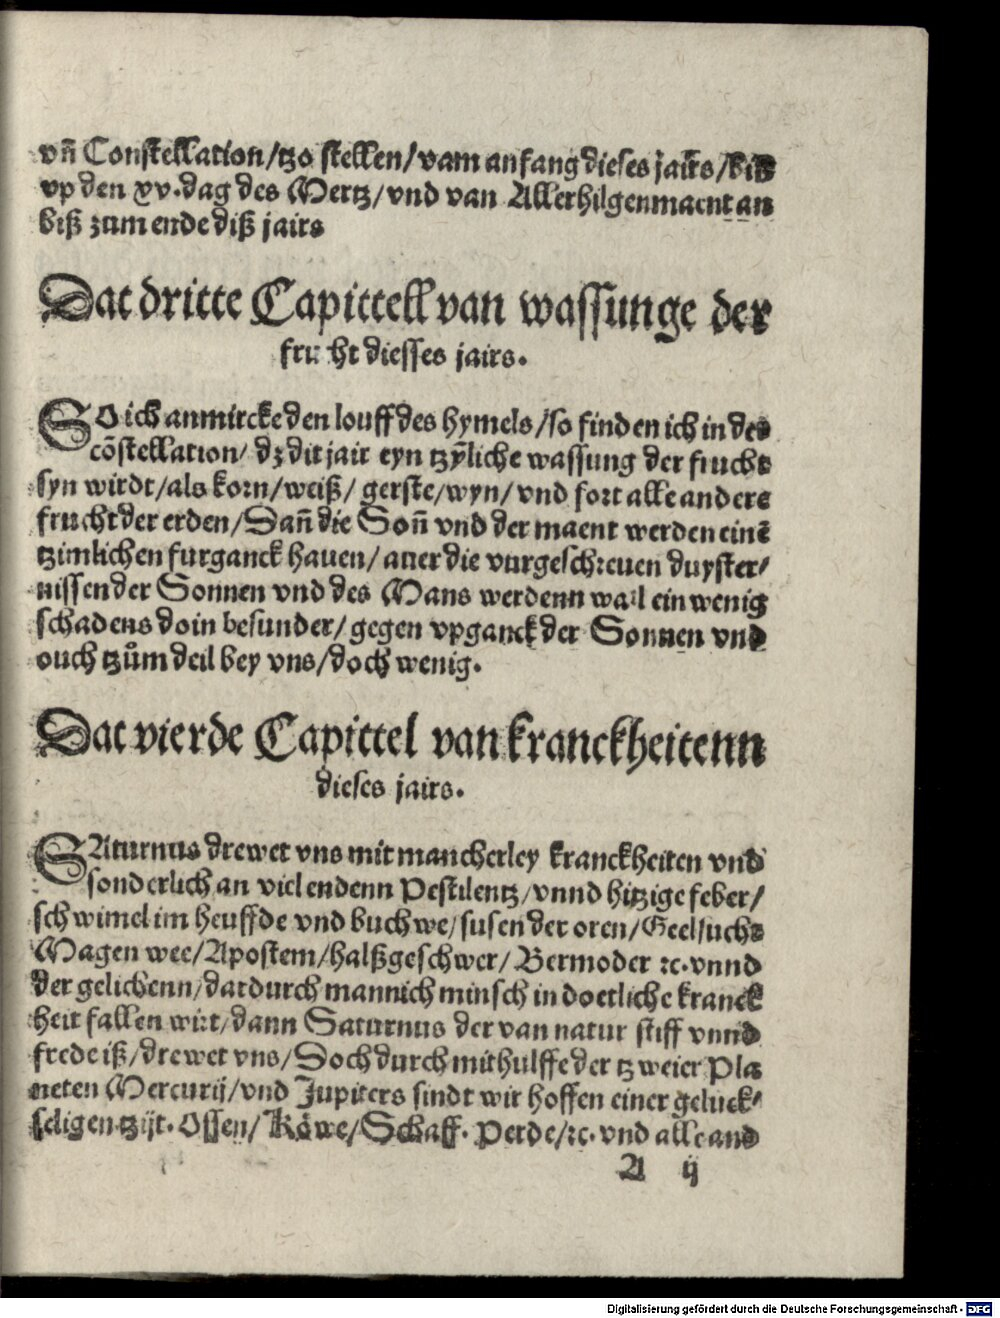 vn̄ Constellation/tzo stellen/vam anfang dieses jairs/biß
vp den xv.dag des Mertz/vnd van Allerhilgenmaent an
biß zum ende diß jairs
Dat dritte Capittell van wassunge der
frucht diesses jairs.
SO ich anmircke den louff des hymels/so finden ich in der
cõstellation/dz dit jair eyn tzÿliche wassung der frucht
syn wirdt/als korn/weiß/gerste/wyn/vnd fort alle andere
frucht der erden/Dañ die Soñ vnd der maent werden einē
tzimlichen furganck hauen/auer die vurgeschreuen duyster/
nissen der Sonnen vnd des Mans werdenn wail ein wenig
schadens doin besunder/gegen vpganck der Sonnen vnd
ouch tzům deil bey vns/doch wenig.
Dat vierde Capittel van kranckheitenn
dieses jairs.
SAturnus drewet vns mit mancherley kranckheiten vnd
sonderlich an viel endenn Pestilentz/vnnd hitzige feber/
schwimel im heuffde vnd buchwe/susen der oren/Geelsucht
Magen wee/Apostem/halßgeschwer/Bermoder ⁊c.vnnd
der gelichenn/dardurch mannich minsch in doetliche kranck
heit fallen wirt/dann Saturnus der van natur stiff vnnd
frede iß/drewet vns/Doch durch mithulffe der tzweier Pla
neten Mercurij/vnd Jupiters sindt wir hoffen einer geluck/
seligen tzijt. Ossen/Köwe/Schaff. Perde/⁊c.vnd alle and
A ij
Digitalisierung gefördert durch die Deutsche Forschungsgemeinschaft - DFG